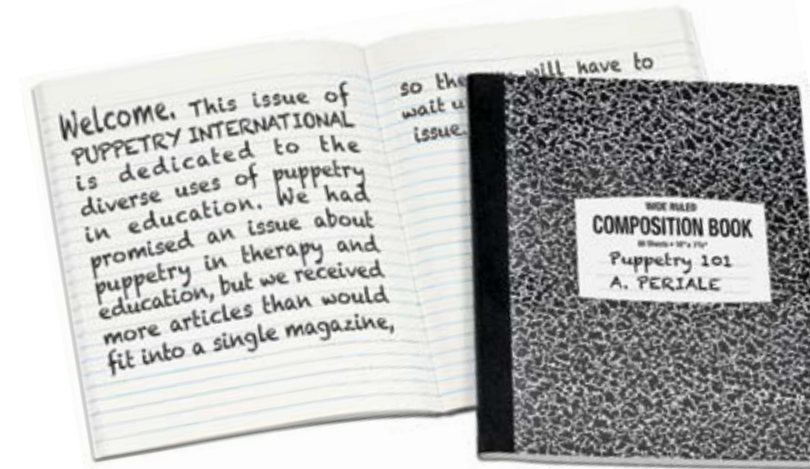 Welcome. This issue of
PUPPETRY INTERNATIONAL
is dedicated to the
diverse uses of puppetry
in education. We had
promised an issue about
puppetry in therapy and
education, but we received
more articles than would
fit into a single magazine,
so the will have to
wait u
issue.
WIDE RULED
COMPOSITION BOOK
Puppetry 101
A. PERIALE